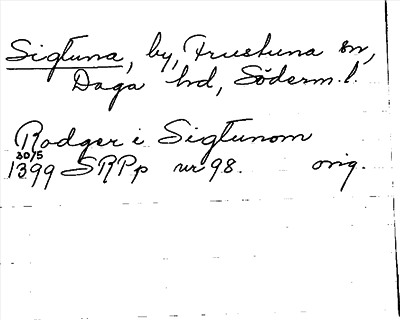 Sigtuna, by, Frustuna sn,
Daga hd, Söderm. l.
Rodger i Sigtunom
30/5
1399 SRPp nr 98. orig.